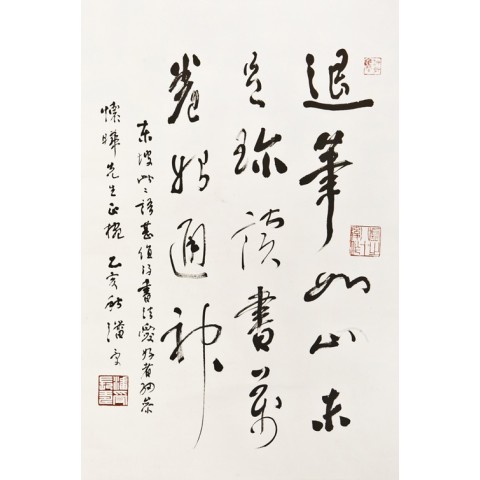 退筆如山未
足珍讀書萬
卷始通神
東坡此二語甚值得書法愛好者細
懷曄先生正腕 乙亥秋潘受